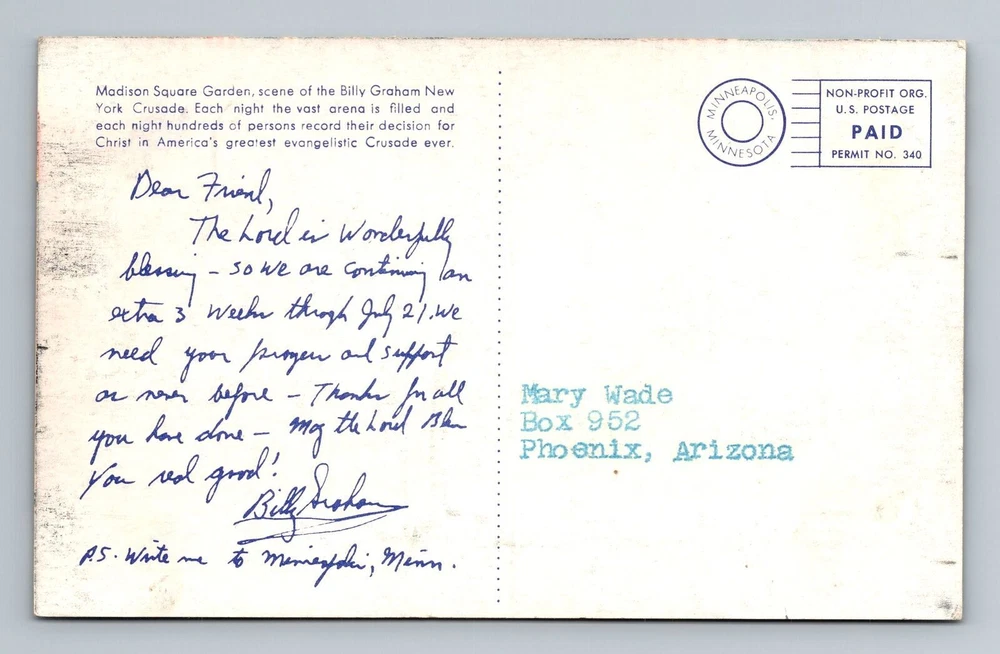 Madison Square Garden, scene of the Billy Graham New
York Crusade. Each night the vast arena is filled and
each night hundreds of persons record their decision for
Christ in America's greatest evangelistic Crusade ever.
Dear Friend,
The Lord is Wonderfully
blessing – so we are continuing an
extra 3 weeks through July 21. We
need your prayer and support
as never before – Thanks for all
you have done – May the Lord Bless
you real good!
Billy Graham
P.S. Write me to Minneapolis, Minn.
MINNEAPOLIS-
MINNESOTA
NON-PROFIT ORG.
U.S. POSTAGE
PAID
PERMIT NO. 340
Mary Wade
Box 952
Phoenix, Arizona